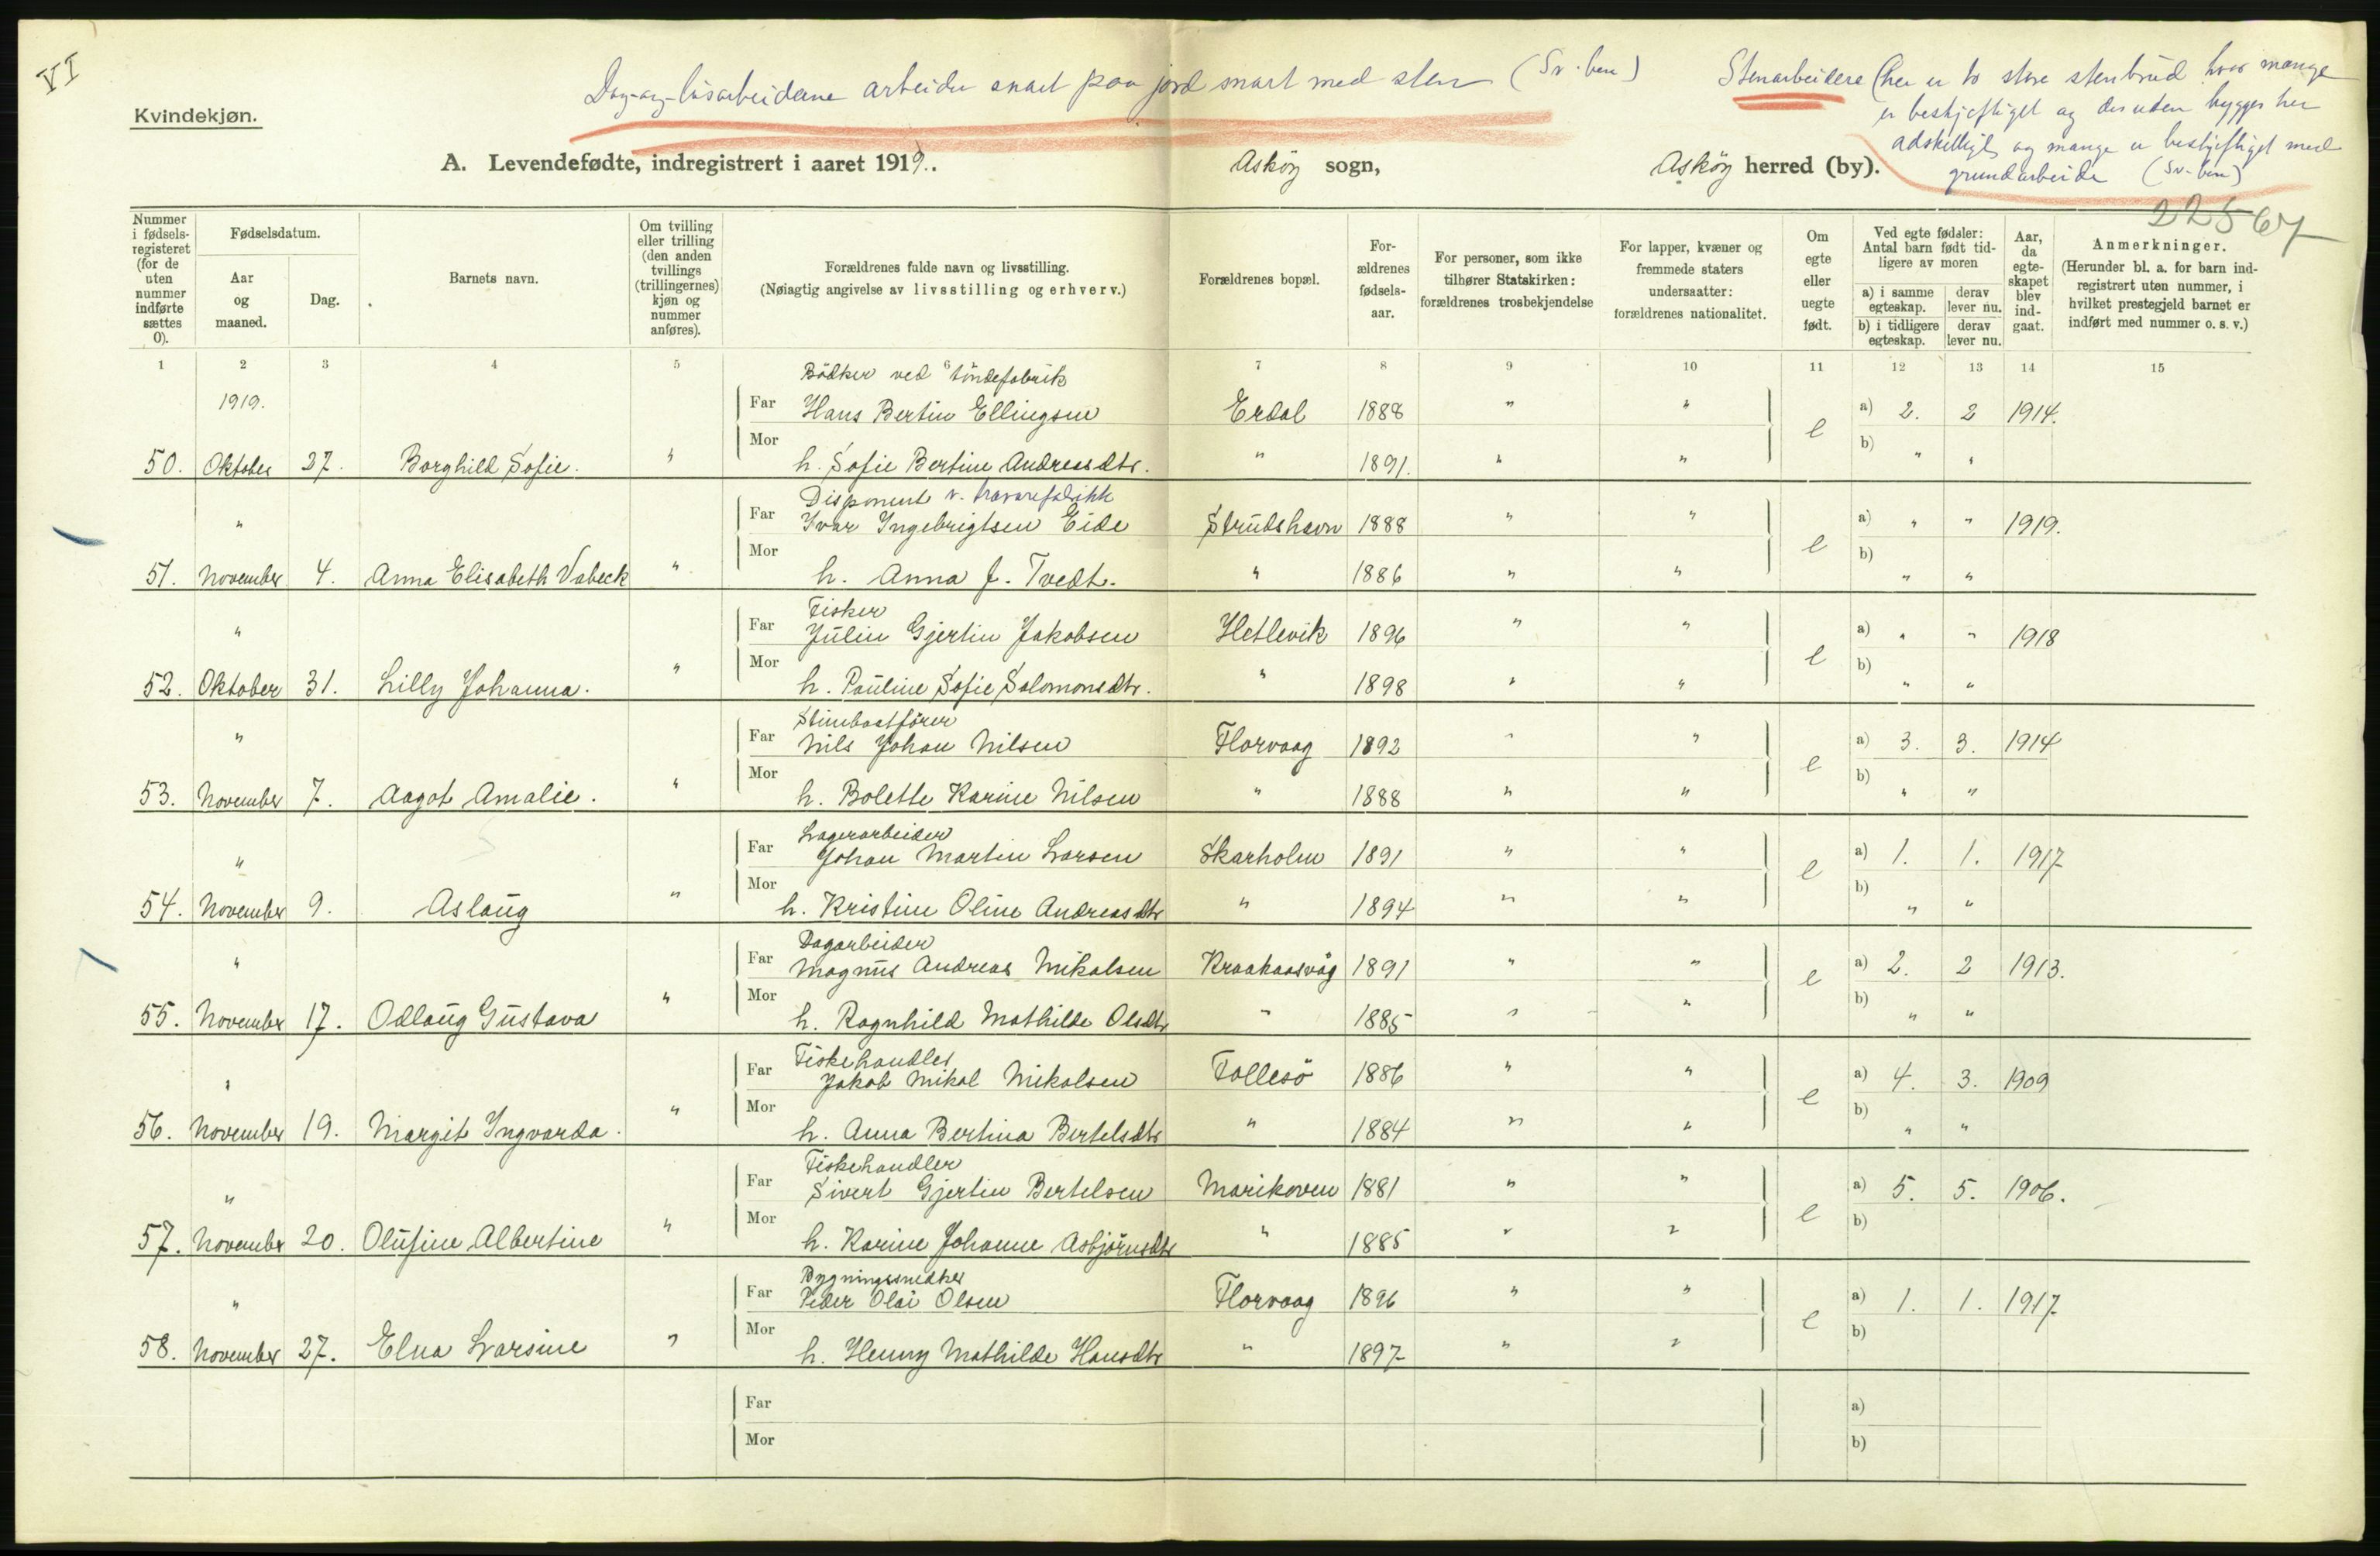 VI
Dag-og-løsarbeiderne arbeider snart paa jord snart med sten (Sv. ben)
Stenarbeidere (her er to store stenbrud hvor mange
er beskjeftiget og desuden bygges her
adskilligt og mange er beskjeftiget med
grundarbeide (Sv. ben)
22567
Kvindekjøn.
A. Levendefødte, indregistrert i aaret 1919. Askøy sogn, Askøy herred (by).
Nummer i fødsels-registeret (for de uten nummer indførte sættes 0).
Fødselsdatum.
Aar og maaned.
Dag.
Barnets navn.
Om tvilling eller trilling (den anden tvillings (trillingernes) kjøn og nummer anføres).
Forældrenes fulde navn og livsstilling.
(Nøiagtig angivelse av livsstilling og erhverv.)
Forældrenes bopæl.
For-ældrenes fødsels-aar.
For personer, som ikke tilhører Statskirken: forældrenes trosbekjendelse
For lapper, kvæner og fremmede staters undersaatter: forældrenes nationalitet.
Om egte eller uegte født.
Ved egte fødsler: Antal barn født tid-ligere av moren
a) i samme egteskap. derav lever nu.
b) i tidligere egteskap. derav lever nu.
Aar, da egte-skapet blev ind-gaat.
Anmerkninger.
(Herunder bl. a. for barn ind-registrert uten nummer, i hvilket prestegjeld barnet er indført med nummer o. s. v.)
1 2 3 4 5 6 7 8 9 10 11 12 13 14 15
Bödker ved töndefabrik
1919. Far Hans Bertin Ellingsen Erdal 1888 " " e a) 2. 2 1914.
50. Oktober 27. Borghild Sofie. " Mor h. Sofie Bertine Andreasdtr. " 1891. " " b) " "
Disponent v. trævarefabrikk
" Far Ivar Ingebrigtsen Eide Strudshavn 1888 " " e a) " " 1919.
51. November 4. Anna Elisabeth Vabeck " Mor h. Anna J. Tvedt. " 1886 " " b) " "
Fisker
" Far Julin Gjertin Jakobsen Hetlevik 1896 " " e a) " " 1918
52. Oktober 31. Lilly Johanna. " Mor h. Pauline Sofie Salomonsdtr. " 1898 " " b) " "
Stimbaatfører
" Far Nils Johan Nilsen Florvaag 1892 " " e a) 3. 3. 1914
53. November 7. Aagot Amalie. " Mor h. Bolette Karine Nilsen " 1888 " " b) " "
Lagerarbeider
" Far Johan Martin Larsen Skarholm 1891 " " e a) 1. 1. 1917
54. November 9. Aslaug " Mor h. Kristine Oline Andreasdtr " 1894 " " b) " "
Dagarbeider
" Far Magnus Andreas Mikalsen Kraakaasvåg 1891 " " e a) 2. 2 1913.
55. November 17. Odlaug Gustava " Mor h. Ragnhild Mathilde Olsdtr " 1885 " " b) " "
Fiskehandler
" Far Jakob Mikal Mikalsen Follesö 1886 " " e a) 4. 3. 1909
56. November 19. Margit Ingvarda. " Mor h. Anna Bertina Bertelsdtr " 1884 " " b) " "
Fiskehandler
" Far Sivert Gjertin Bertelsen Marikoven 1881 " " e a) 5. 5. 1906.
57. November 20. Olufine Albertine " Mor h. Karine Johanne Asbjörnsdtr " 1885 " " b)
Bygningssnedker
" Far Peder Olai Olsen Florvaag 1896 " " e a) 1. 1. 1917
58. November 27. Elna Larsine " Mor h. Henny Mathilde Hansdtr " 1897 " " b)
Far a)
Mor b)